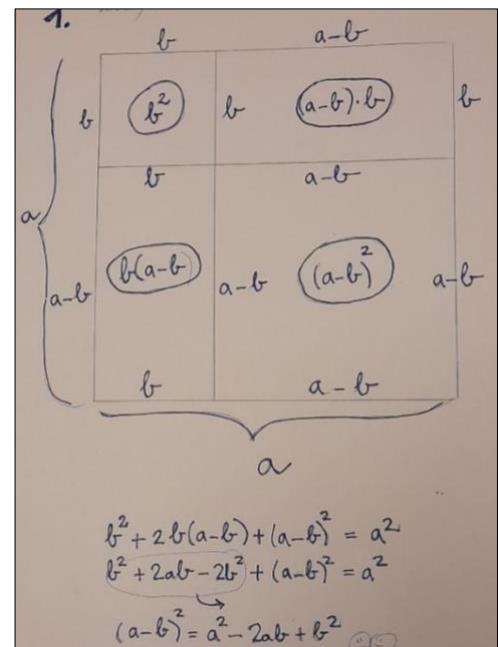 1.
b a-b
b b² b (a-b)·b b
b a-b
a
b(a-b) (a-b)²
a-b a-b a-b
b a-b
a
b² + 2b(a-b) + (a-b)² = a²
b² + 2ab - 2b² + (a-b)² = a²
(a-b)² = a² - 2ab + b²